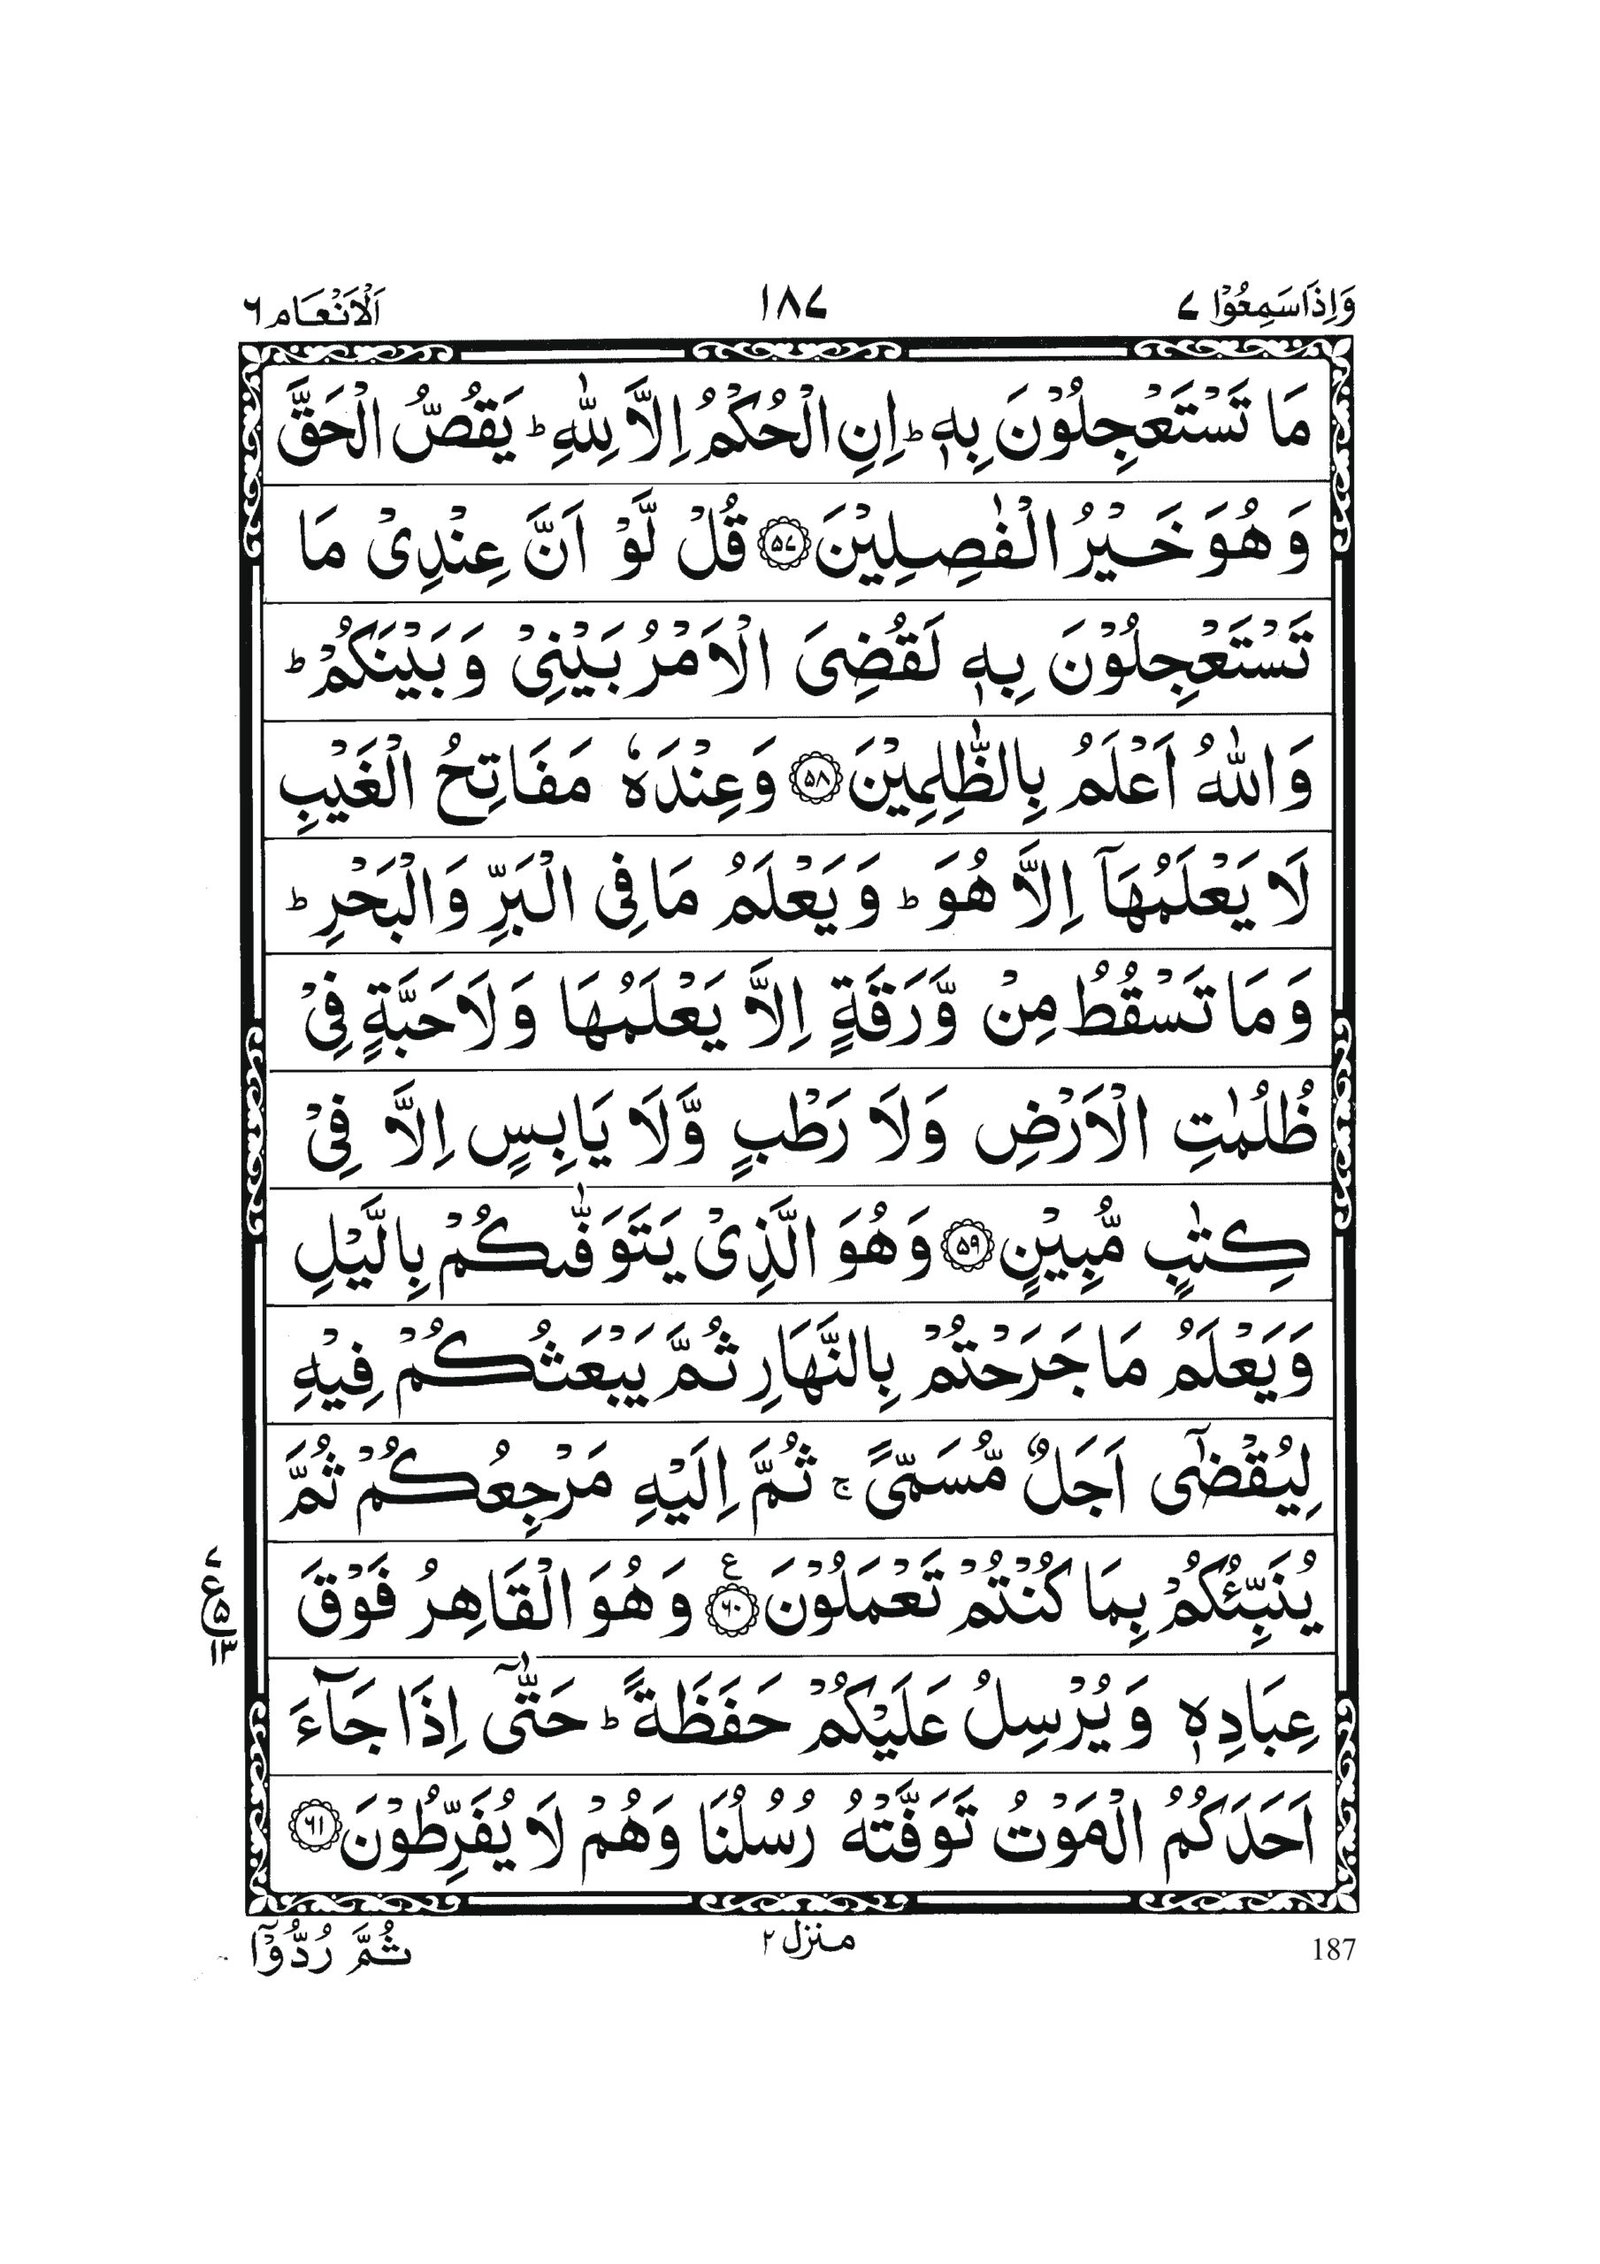 وَاِذَا سَمِعُوْا ۷ ۱۸۷ اَلْاَنْعَام ۶
مَا تَسْتَعْجِلُوْنَ بِهٖ ؕ اِنِ الْحُكْمُ اِلَّا لِلّٰهِ ؕ يَقُصُّ الْحَقَّ
وَهُوَ خَيْرُ الْفٰصِلِيْنَ ۝۵۷ قُلْ لَّوْ اَنَّ عِنْدِىْ مَا
تَسْتَعْجِلُوْنَ بِهٖ لَقُضِىَ الْاَمْرُ بَيْنِىْ وَبَيْنَكُمْ ؕ
وَاللّٰهُ اَعْلَمُ بِالظّٰلِمِيْنَ ۝۵۸ وَعِنْدَهٗ مَفَاتِحُ الْغَيْبِ
لَا يَعْلَمُهَاۤ اِلَّا هُوَ ؕ وَيَعْلَمُ مَا فِى الْبَرِّ وَالْبَحْرِ ؕ
وَمَا تَسْقُطُ مِنْ وَّرَقَةٍ اِلَّا يَعْلَمُهَا وَلَا حَبَّةٍ فِىْ
ظُلُمٰتِ الْاَرْضِ وَلَا رَطْبٍ وَّلَا يَابِسٍ اِلَّا فِىْ
كِتٰبٍ مُّبِيْنٍ ۝۵۹ وَهُوَ الَّذِىْ يَتَوَفّٰىكُمْ بِالَّيْلِ
وَيَعْلَمُ مَا جَرَحْتُمْ بِالنَّهَارِ ثُمَّ يَبْعَثُكُمْ فِيْهِ
لِيُقْضٰۤى اَجَلٌ مُّسَمًّى ۚ ثُمَّ اِلَيْهِ مَرْجِعُكُمْ ثُمَّ
يُنَبِّئُكُمْ بِمَا كُنْتُمْ تَعْمَلُوْنَ ۝۶۰ ع وَهُوَ الْقَاهِرُ فَوْقَ
۷ ع ۵ ۱۳
عِبَادِهٖ وَيُرْسِلُ عَلَيْكُمْ حَفَظَةً ؕ حَتّٰۤى اِذَا جَآءَ
اَحَدَكُمُ الْمَوْتُ تَوَفَّتْهُ رُسُلُنَا وَهُمْ لَا يُفَرِّطُوْنَ ۝۶۱
187 منزل ۲ ثُمَّ رُدُّوْۤا